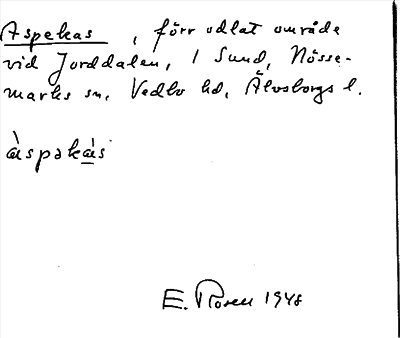 Aspekas, förr odlat område
vid Jorddalen, 1 Sund, Nösse-
marks sn, Vedbo hd, Älvsborgs l.
àspəkàs
E. Rosen 1948